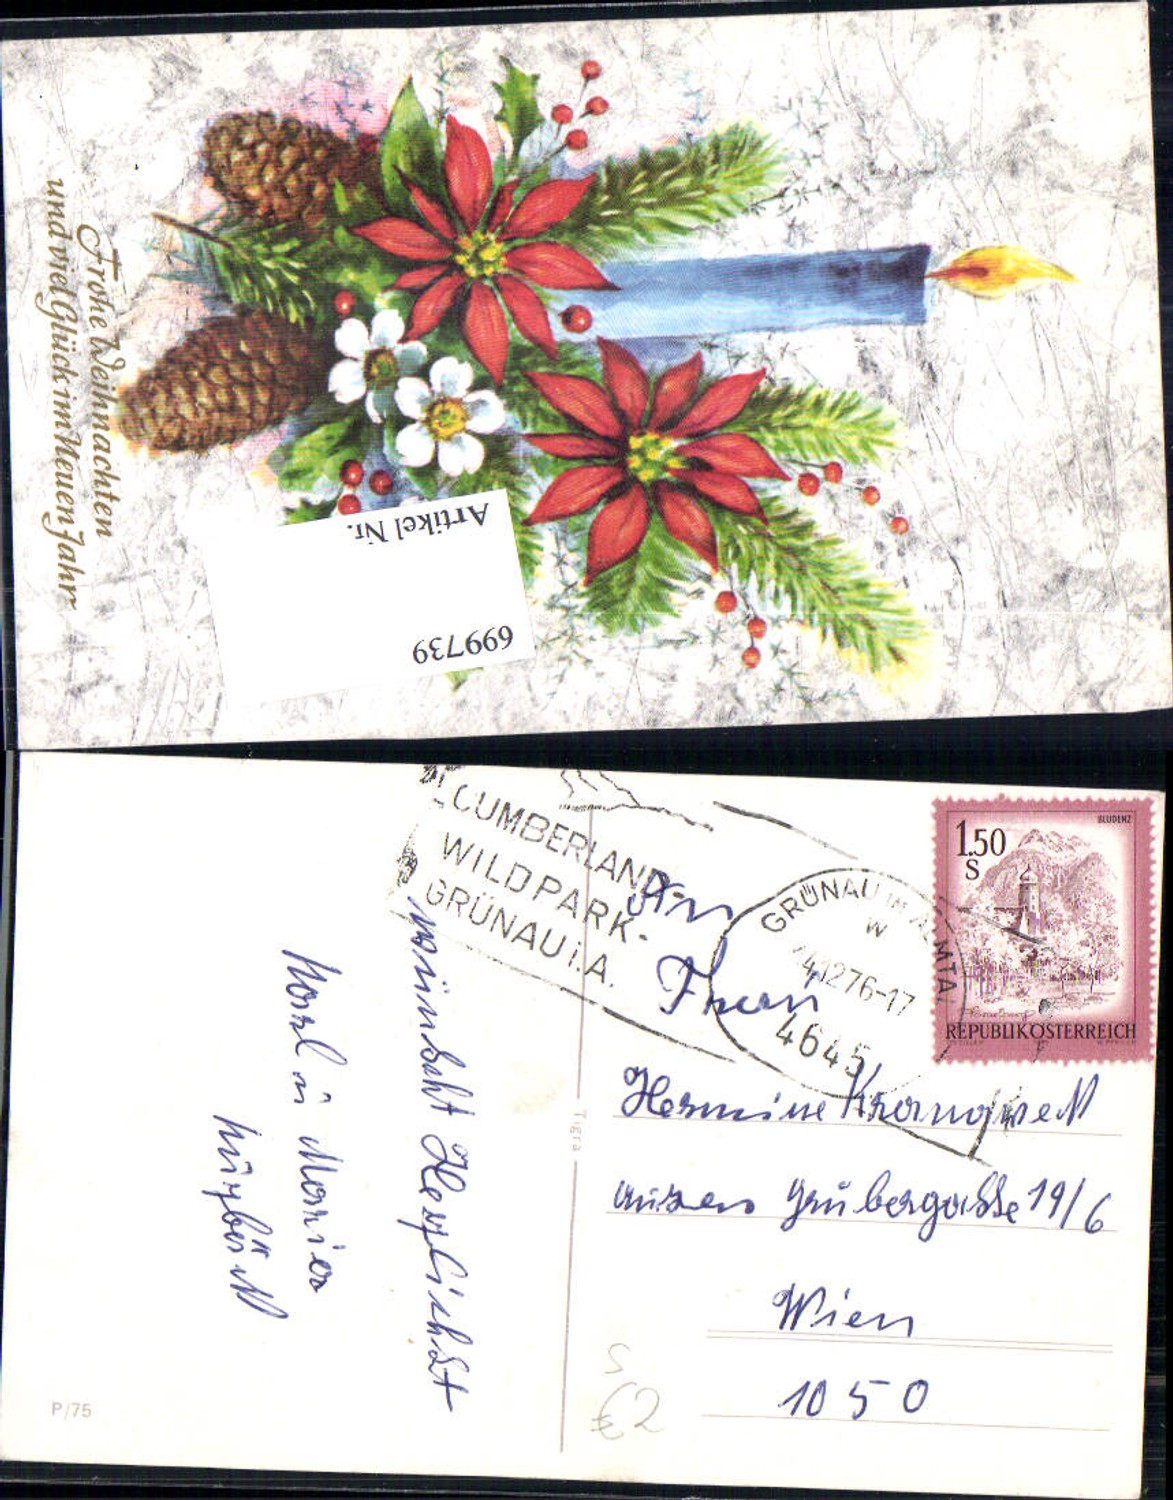 Frohe Weihnachten
und viel Glück im Neuen Jahr
Artikel Nr.
699739
CUMBERLAND-
WILDPARK-
GRÜNAU i.A.
GRÜNAU IM ALMTAL
W
4.12.76-17
4645
BLUDENZ
1.50
S
REPUBLIK ÖSTERREICH
An
Frau
Hermine
19/6
Wien
1050
wünscht Herzlichst
Karl u Maria
Tigra
P/75
€2